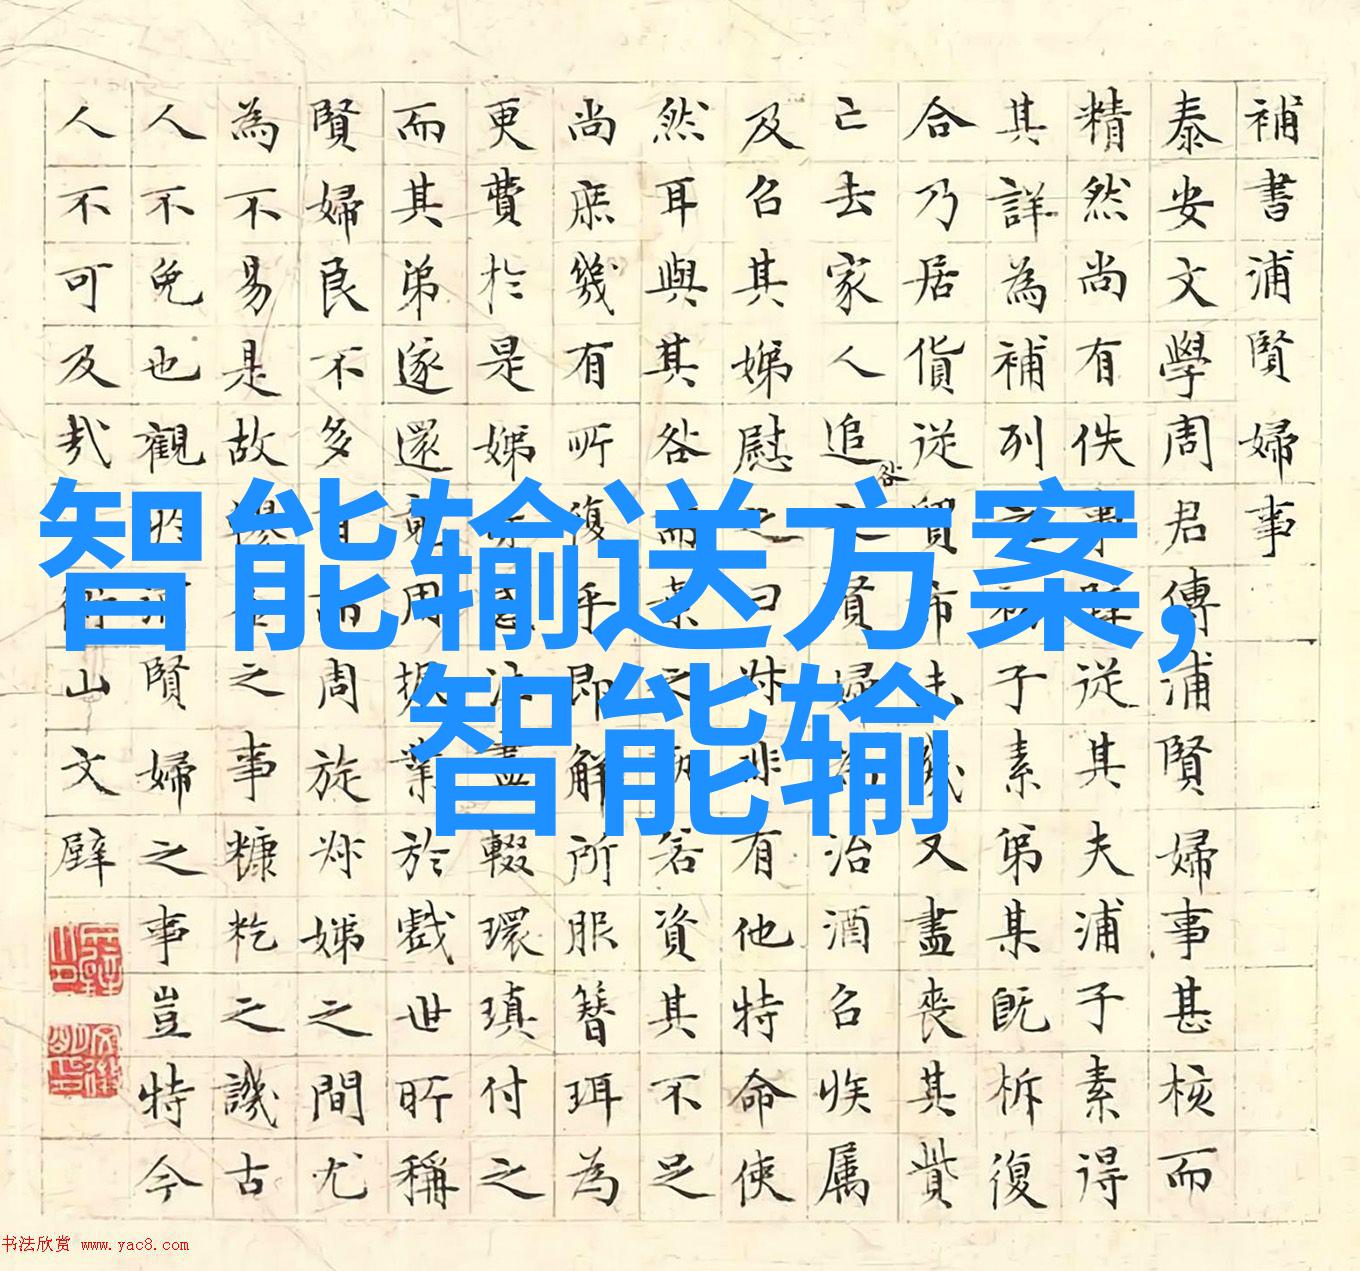 補書浦賢婦事
泰安文學周君傳浦賢婦事甚核而
精然尚有佚事 從其夫浦子素得
其詳為補列 子素弟某既析復
合乃居貨從賈 又盡喪其貲
已去家人追 貧 治酒召族属
及召其娣慰之曰 非有他特命侠
然耳與其 而 資其不足
尚庶幾有所復乎即解所服簪珥為
更費於是娣 盡輟環瑱付之
而其弟遂還 周 業於戲世所稱
賢婦良不多 周旋 娣之間尤
為不易是故 之事糠籺之譏古
人不免也觀 賢婦之事豈特今
人不可及哉
山文壁
智能输送方案，
智能输
书法欣赏 www.yac8.com